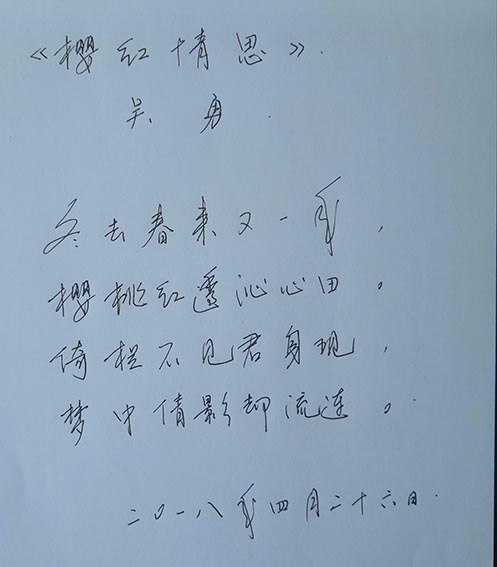 《樱红情思》.
吴勇.
冬去春来又一年，
樱桃红遍沁心田。
倚栏不见君身现，
梦中倩影却流连。
二〇一八年四月二十六日.